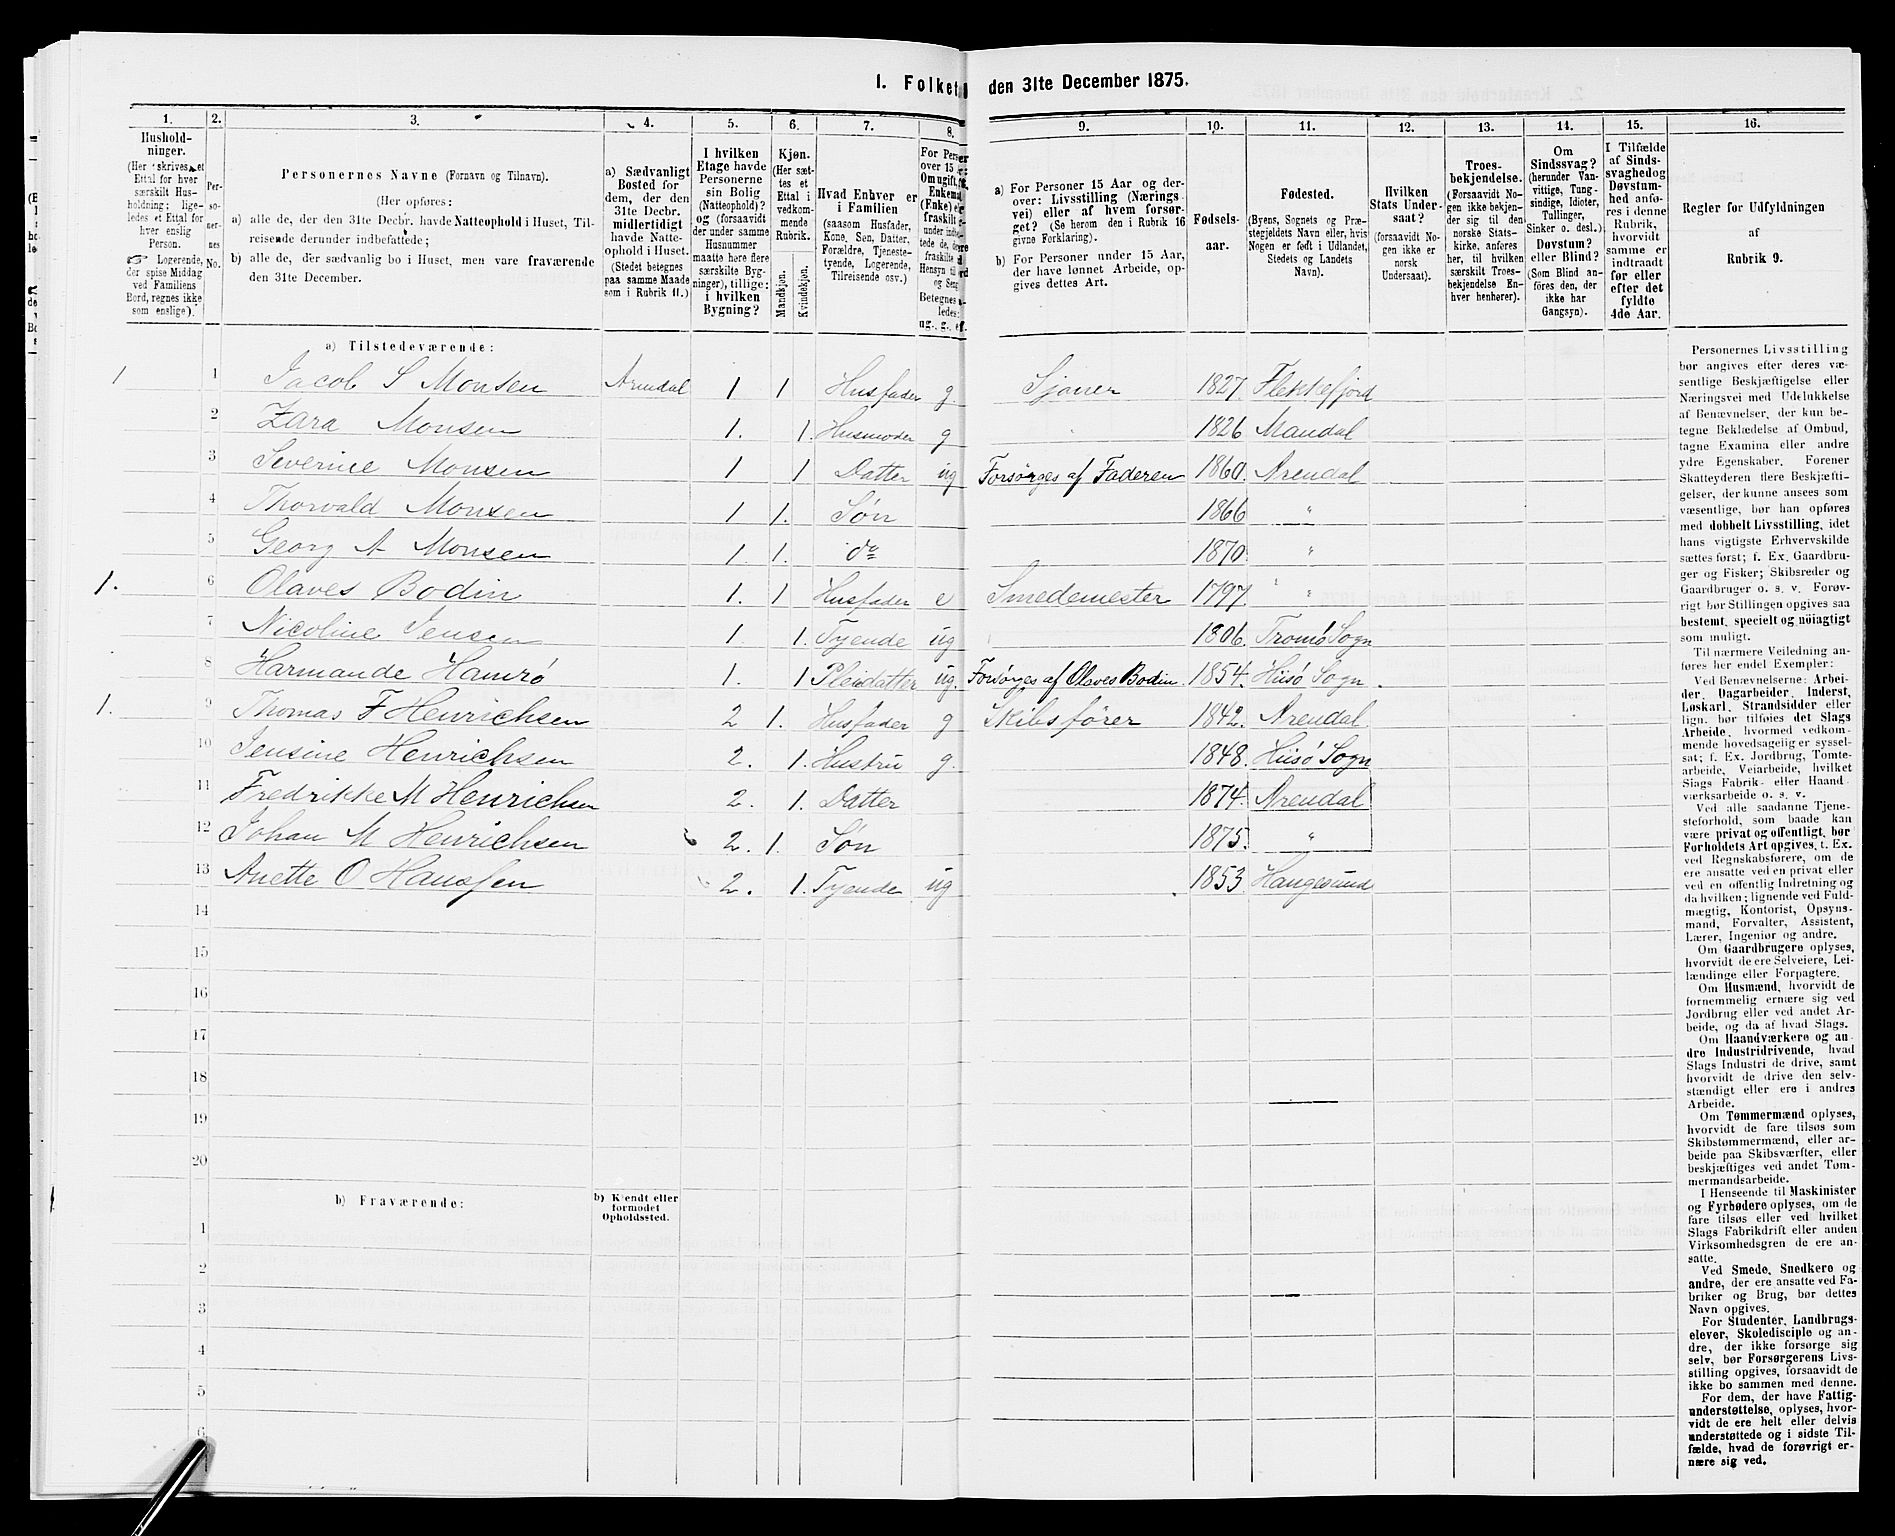 1. Folket den 31te December 1875.
1. 2. 3. 4. 5. 6. 7. 8. 9. 10. 11. 12. 13. 14. 15. 16.
Hushold-
ninger.
(Her skrives et
Ettal for hver
særskilt Hus-
holdning; lige-
ledes et Ettal for
hver enslig
Person.
☞ Logerende,
der spise Middag
ved Familiens
Bord, regnes ikke
som enslige).
Per-
so-
ner-
nes
No.
Personernes Navne (Fornavn og Tilnavn).
(Her opføres:
a) alle de, der den 31te Decbr. havde Natteophold i Huset, Til-
reisende derunder indbefattede;
b) alle de, der sædvanlig bo i Huset, men vare fraværende
den 31te December.
a) Sædvanligt
Bosted for
dem, der den
31te Decbr.
midlertidigt
havde Natte-
ophold i Huset.
(Stedet betegnes
paa samme Maade
som i Rubrik 11.)
I hvilken
Etage havde
Personerne
sin Bolig
(Natteophold)?
og (forsaavidt
der under samme
Husnummer
maatte høre flere
særskilte Byg-
ninger), tillige:
i hvilken
Bygning?
Kjøn.
(Her sæt-
tes et
Ettal i
vedkom-
mende
Rubrik.
Mandkjøn.
Kvindekjøn.
Hvad Enhver er
i Familien
(saasom Husfader,
Kone, Søn, Datter,
Forældre, Tjeneste-
tyende, Logerende,
Tilreisende osv.)
For Perser
over 15
Om ugift,
Enkemand,
(Enke) eler
fraskilt
under indbe-
fattede de,
fraskilte
Hensyn til
og Seng
Betegnes
ledes:
ug., g., e.
a) For Personer 15 Aar og der-
over: Livsstilling (Nærings-
vei) eller af hvem forsør-
get? (Se herom den i Rubrik 16
givne Forklaring.)
b) For Personer under 15 Aar,
der have lønnet Arbeide, op-
gives dettes Art.
Fødsels-
aar.
Fødested.
(Byens, Sognets og Præ-
stegjeldets Navn eller, hvis
Nogen er født i Udlandet,
Stedets og Landets
Navn).
Hvilken
Stats Under-
saat?
(forsaavidt No-
gen ikke er
norsk
Undersaat).
Troes-
bekjendelse.
(Forsaavidt No-
gen ikke bekjen-
der sig til den
norske Stats-
kirke, anføres
her, til hvilken
særskilt Troes-
bekjendelse En-
hver henhører).
Om
Sindssvag?
(herunder Van-
vittige, Tung-
sindige, Idioter,
Tullinger,
Sinker o. desl.).
Døvstum?
eller Blind?
(Som Blind an-
føres den, der
ikke har
Gangsyn).
I Tilfælde
af Sinds-
svaghed og
Døvstum-
hed anfø-
res i denne
Rubrik,
hvorvidt
samme er
indtraadt
før eller
efter det
fyldte
4de Aar.
Regler for Udfyldningen
af
Rubrik 9.
a) Tilstedeværende:
1 1 Jacob S Monsen Arendal 1 1 Husfader g. Sjømer 1827. Flekkefjord
2 Zara Monsen 1. 1. Husmoder g 1826 Mandal
3 Severine Monsen 1 1 Datter ug Forsørges af Faderen 1860. Arendal
4 Thorvald Monsen 1 1. Søn 1866 "
5 Georg A Monsen 1. 1. do 1870. "
1. 6 Olaves Bodin 1. 1 Husfader e Smedemester 1797. "
7 Nicoline Jensen 1. 1. Tyende ug 1806. Tromø Sogn
8 Harmande Hamrø 1. 1 Pleidatter ug. Forsørges af Olaves Bodin. 1854. Hiisø Sogn.
1. 9 Thomas F Henrichsen 2 1. Husfader g Skibsfører 1842. Arendal
10 Jensine Henrichsen 2. 1. Hustru g. 1848. Hiisø Sogn
11 Fredrikke M Henrichsen 2. 1. Datter 1874. Arendal
12 Johan M Henrichsen 2. 1. Søn 1875. "
13 Anette O Hanssen 2. 1. Tyende ug 1853 Haugesund
14
15
16
17
18
19
20
b) Fraværende:
b) Kjendt eller
formodet
Opholdssted.
1
2
3
4
5
6
Personernes Livsstilling
bør angives efter deres væ-
sentlige Beskjæftigelse eller
Næringsvei med Udelukkelse
af Benævnelser, der kun be-
tegne Beklædelse af Ombud,
tagne Examina eller andre
ydre Egenskaber. Forener
Skatteyderen flere Beskjæfti-
gelser, der kunne ansees som
væsentlige, bør han opføres
med dobbelt Livsstilling, idet
hans vigtigste Erhvervskilde
sættes først; f. Ex. Gaardbru-
ger og Fisker; Skibsreder og
Gaardbruger o. s. v. Forøv-
rigt bør Stillingen opgives saa
bestemt, specielt og nöiagtigt
som muligt.
Til nærmere Veiledning an-
føres her endel Exempler:
Ved Benævnelserne: Arbei-
der, Dagarbeider, Inderst,
Løskarl, Strandsidder eller
lign. bør tilføies det Slags
Arbeide, hvormed vedkom-
mende hovedsagelig er syssel-
sat; f. Ex. Jordbrug, Tomte-
arbeide, Veiarbeide, hvilket
Slags Fabrik- eller Haand-
værksarbeide o. s. v.
Ved alle saadanne Tjene-
steforhold, som baade kan
være privat og offentligt, bør
Forholdets Art opgives, t. Ex.
ved Regnskabsførere, om de
ere ansatte ved en privat eller
ved en offentlig Indretning og
da hvilken; lignende ved Fuld-
mægtig, Kontorist, Opsyns-
mand, Forvalter, Assistent,
Lærer, Ingeniør og andre.
Om Gaardbrugere oplyses,
hvorvidt de ere Selveiere, Lei-
lændinge eller Forpagtere.
Om Husmænd, hvorvidt de
fornemmelig ernære sig ved
Jordbrug eller ved andet Ar-
beide, og da af hvad Slags.
Om Haandværkere og an-
dre Industridrivende, hvad
Slags Industri de drive, samt
hvorvidt de drive den selv-
stændigt eller ere i andres
Arbeide.
Om Tømmermænd oplyses,
hvorvidt de fare tilsøs som
Skibstømmermænd, eller ar-
beide paa Skibsværfter, eller
beskjæftiges ved andet Tøm-
mermandsarbeide.
I Henseende til Maskinister
og Fyrbødere oplyses, om de
fare tilsøs eller ved hvilket
Slags Fabrikdrift eller anden
Virksomhedsgren de ere an-
satte.
Ved Smede, Snedkere og
andre, der ere ansatte ved Fa-
briker og Brug, bør dettes
Navn opgives.
For Studenter, Landbrugs-
elever, Skoledisciple og an-
dre, der ikke forsørge sig
selv, bør Forsørgerens Livs-
stilling opgives, forsaavidt de
ikke bo sammen med denne.
For dem, der have Fattig-
understøttelse, oplyses, hvor-
vidt de ere helt eller delvis
understøttede og i sidste Til-
fælde, hvad de forøvrigt er-
nære sig ved.